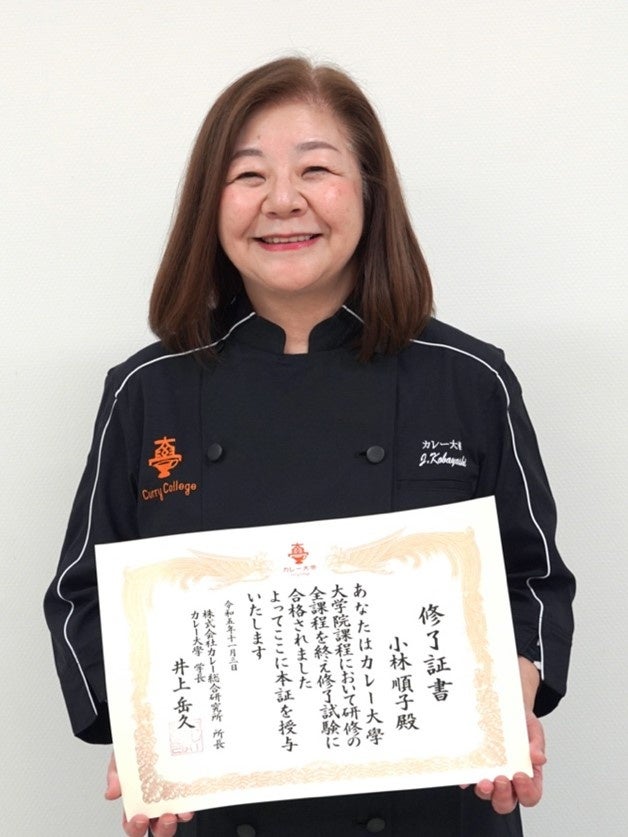 Curry College
カレー大學
J.Kobayashi
カレー大學
修了証書
小林順子殿
あなたはカレー大學
大学院課程において研修の
全課程を終え修了試験に
合格されました
よってここに本証を授与
いたします
令和五年十一月三日
株式会社カレー総合研究所 所長
カレー大學 学長
井上岳久